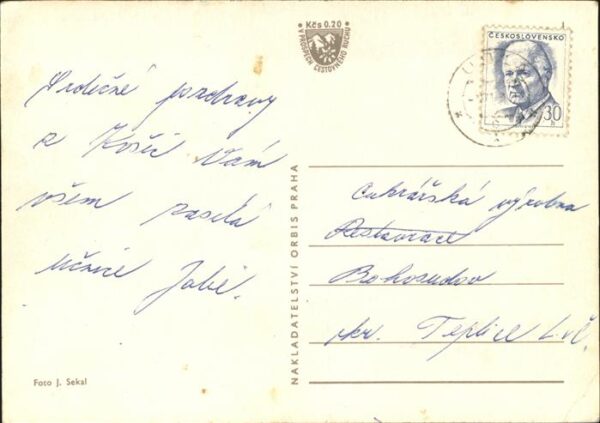 Kčs 0.20
V PROSPĚCH CESTOVNÉHO RUCHU
ČESKOSLOVENSKO
30 h
Srdečné pozdravy
z Košic Vám
všem zasílá
učnice
NAKLADATELSTVÍ ORBIS PRAHA
Cukrářská výrobna
Restaurace
Bohosudov
okr. Teplice L.č.
Foto J. Sekal